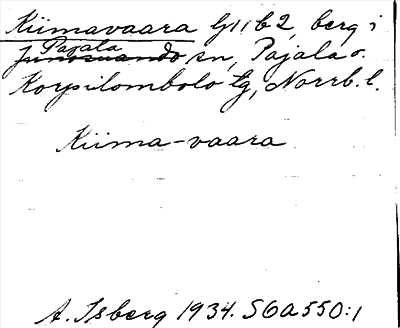 Kiimavaara G1, b2, berg i
Pajala
Junosuando sn, Pajala o.
Korpilombolo tg, Norrb. l.
Kiima-vaara
A. Isberg 1934. S6A550:1